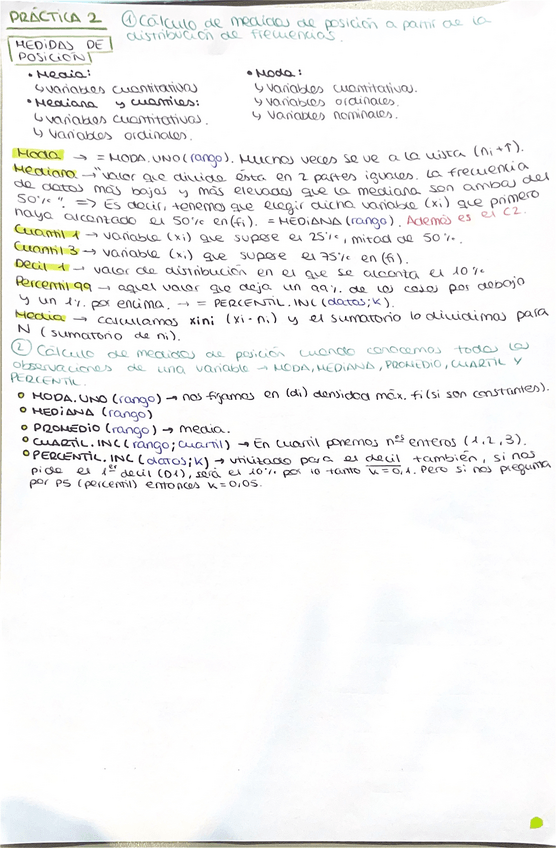 PRÁCTICA 2
① Cálculo de medidas de posición a partir de la
distribución de frecuencias.
MEDIDAS DE
POSICIÓN
• Media:
↳ variables cuantitativas
• Mediana y cuantiles:
↳ variables cuantitativas.
↳ variables ordinales.
• Moda:
↳ variables cuantitativas.
↳ variables ordinales.
↳ variables nominales.
Moda → = MODA.UNO(rango). Muchas veces se ve a la vista (ni+↑).
Mediana → "valor que divide ésta en 2 partes iguales. La frecuencia
de datos más bajos y más elevados que la mediana son ambas del
50%". => Es decir, tenemos que elegir dicha variable (xi) que primero
haya alcanzado el 50% en (fi). = MEDIANA (rango). Además es el C2.
Cuantil 1 → variable (xi) que supere el 25%, mitad de 50%.
Cuantil 3 → variable (xi) que supere el 75% en (fi).
Decil 1 → valor de distribución en el que se alcanza el 10%
Percentil 99 → aquel valor que deja un 99% de los casos por debajo
y un 1% por encima. → = PERCENTIL.INC (datos; k).
Media → calculamos xini (xi·ni) y el sumatorio lo dividimos para
N (sumatorio de ni).
② Cálculo de medidas de posición cuando conocemos todas las
observaciones de una variable → MODA, MEDIANA, PROMEDIO, CUARTIL Y
PERCENTIL.
• MODA.UNO (rango) → nos fijamos en (di) densidad máx. fi (si son constantes).
• MEDIANA (rango)
• PROMEDIO (rango) → media.
• CUARTIL.INC (rango; cuartil) → En cuartil ponemos nºs enteros (1, 2, 3).
• PERCENTIL.INC (datos; k) → utilizado para el decil también, si nos
pide el 1er decil (D1), será el 10% por lo tanto k=0,1. Pero si nos pregunta
por P5 (percentil) entonces k=0,05.